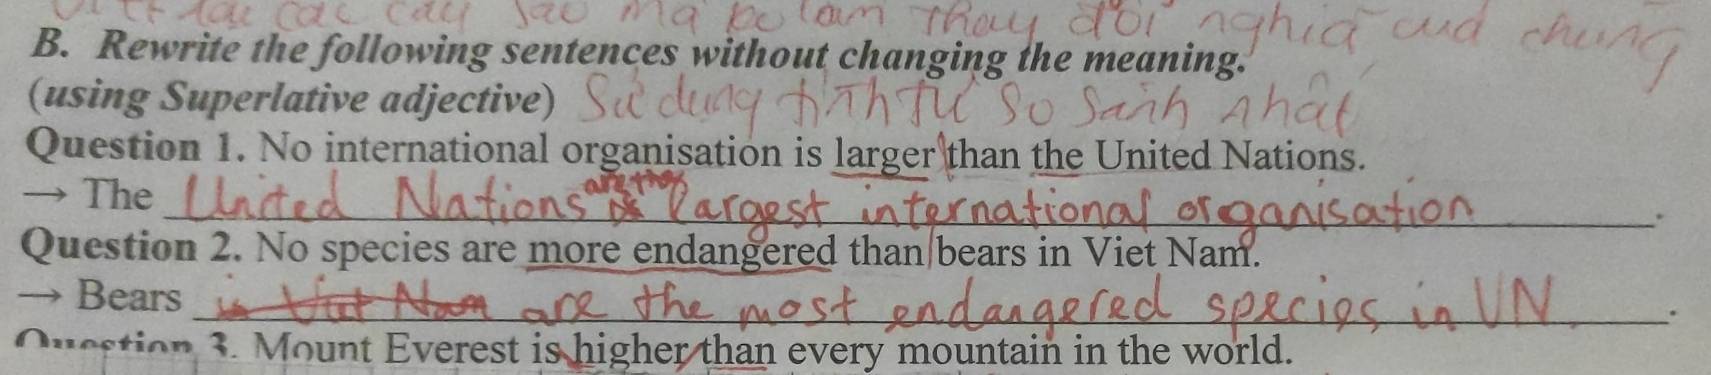 Viết lại các câu sao mà ko làm thay đổi nghĩa của chúng
B. Rewrite the following sentences without changing the meaning.
(using Superlative adjective) Sử dụng tính từ so sánh nhất
Question 1. No international organisation is larger than the United Nations.
→ The United Nations are the largest international organisation.
Question 2. No species are more endangered than bears in Viet Nam.
→ Bears in Viet Nam are the most endangered species in VN.
Question 3. Mount Everest is higher than every mountain in the world.